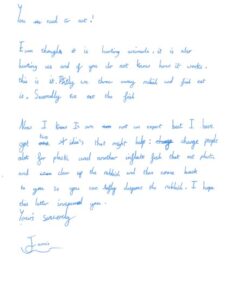 You need to act!
I am thoughts it is hurting animals. it is also
hurting us and if you do not know how it works.
this is it. Firstly we throw away rubbish and fish eat
it. Secondly we eat the fish
Now I know I am not an expert but I have
got five idea's that might help: change people
also for plastic and another that not plastic
and clean up the rubbish and then come back
to you so you can dispose the rubbish. I hope
this letter inspired you.
Yours sincerely